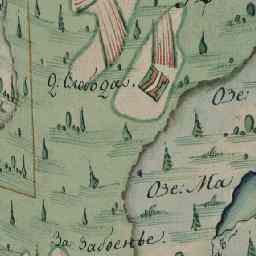 д. Слободая.
Озе:
Озе: Ма
За Забоенье.